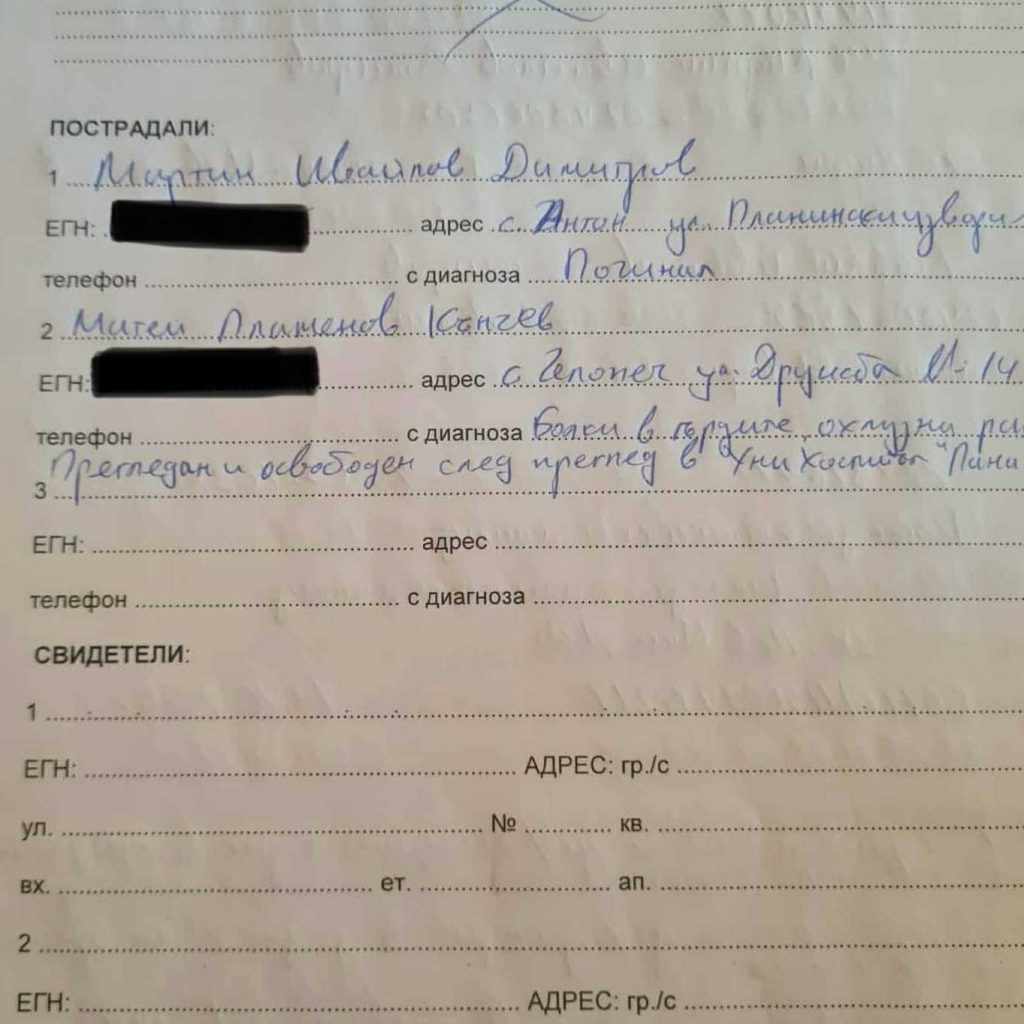 ПОСТРАДАЛИ:
1 Мартин Ивайлов Димитров
ЕГН: адрес с. Антон ул. Планински
телефон с диагноза Починал
2 Матей Пламенов Кънчев
ЕГН: адрес с. Челопеч ул. Дружба № 14
телефон с диагноза Болки в гърдите, охлузни ра
Прегледан и освободен след преглед в "Уни Хоспитал" Пана
3
ЕГН: адрес
телефон с диагноза
СВИДЕТЕЛИ:
1
ЕГН: АДРЕС: гр./с
ул. № кв.
вх. ет. ап.
2
ЕГН: АДРЕС: гр./с